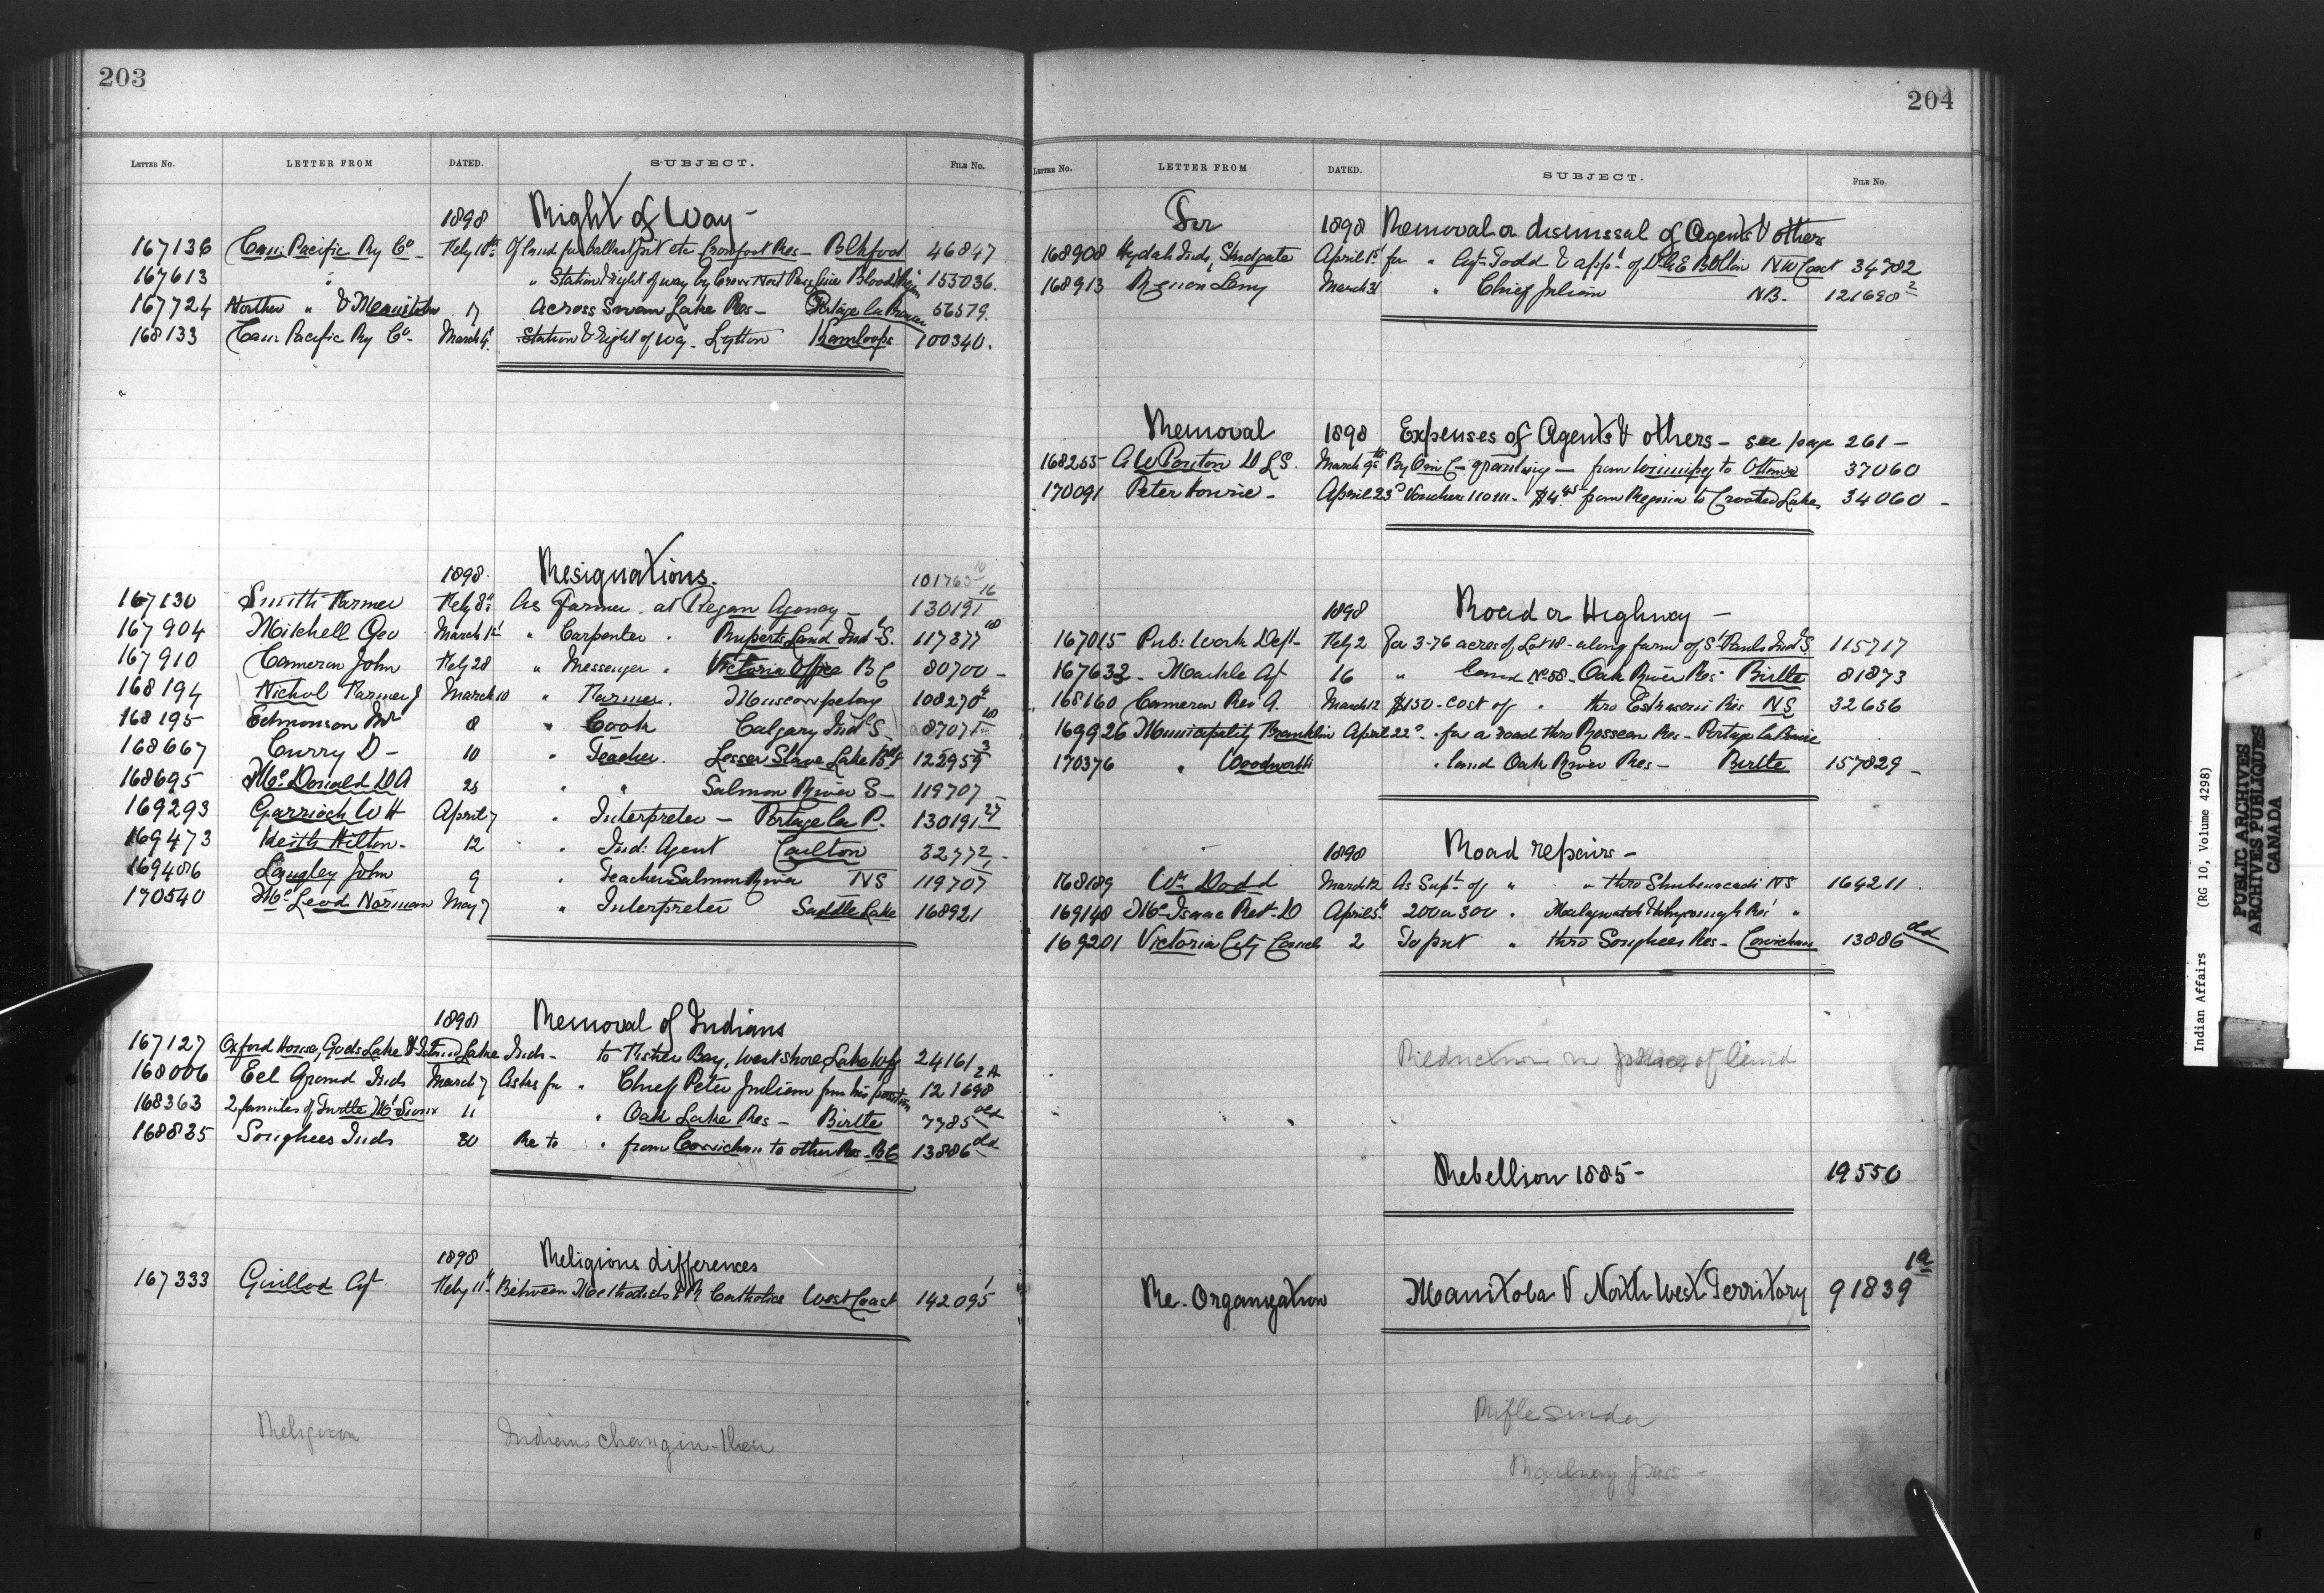 203
LETTER No. LETTER FROM DATED. SUBJECT. FILE No.
1898 Right of Way -
167136 Can: Pacific Ry Co - Feby 10th Of land for ballast pit etc Crowfoot Res - Blkfoot 46847
167613 " " Station & right of way by Crows Nest Pass line Blood 155036.
167724 Norther " & Manitoba 17 Across Swan Lake Res - Portage la Prairie 56579.
168133 Can: Pacific Ry Co - March 4 Station & right of way - Lytton Kamloops 100340.
1898 Resignations. 101763 10
167130 Smith Farmer Feby 8 As Farmer at Piegan Agency - 130191 16
167904 Mitchell Geo March 1st " Carpenter " Ruperts Land Indl S. 117377 18
167910 Cameron John Feby 28 " Messenger " Victoria Office B C 80700 -
168194 Nichol Farmer J March 10 " Farmer. Muscowpetung 108270 4
168195 Edmonson Mr 8 " Cook Calgary Indl S. 87071 18
168667 Curry D - 10 " Teacher. Lesser Slave Lake 122959 3
168695 McDonald D A 25 " " Salmon River S - 119707
169293 Garrioch W H April 7 " Interpreter - Portage la P. 130191 27
169473 Keith Hilton - 12 " Ind: Agent Carlton 32772 -
169486 Langley John 9 " Teacher Salmon River NS 119707
170540 McLeod Norman May 7 " Interpreter Saddle Lake 168921
1898 Removal of Indians
167127 Oxford House, Gods Lake & Island Lake Inds - to Fisher Bay, west shore, Lake Wpg 24161
168006 Eel Ground Inds March 7 Asks for " Chief Peter Julian from his position 121698 2A
168363 2 families of Turtle Mt Sioux 11 " Oak Lake Res - Birtle 7785 old
168835 Songhees Inds 30 Re to " from Cowichan to other Res - BC 13886 old
1898 Religious differences
167333 Guillod Agt Feby 11th Between Methodists & R Catholics West Coast 142095 1
Religion Indians changin - their
204
LETTER No. LETTER FROM DATED. SUBJECT. FILE No.
For 1898 Removal or dismissal of Agents & others
168908 Hydah Inds, Skidgate April 1st for " Agt Todd & appt of NW Coast 34782
168913 March 31 " Chief Julian NB. 121698 2
Removal 1898 Expenses of Agents & others - see page 261 -
168255 A W Ponton D L S. March 9th By Orn C - granting - from Winnipeg to Ottawa 37060
170091 Peter Hourie - April 23d Voucher $4 45 from Regina to Crooked Lake 34060 -
1898 Road or Highway -
167015 Pub: Work Dept - Feby 2 For 3-76 acres of Lot 18 - along farm of St Pauls Indl S 115717
167632 - Markle Agt 16 " land No 58 - Oak River Res - Birtle 81873
168160 Cameron Rev A. March 12 $150 - cost of " thro Eskasoni Res NS 32656
169926 Municipality Franklin April 22d " for a road thro Rosseau Res - Portage la Prairie
170376 " Woodworth " land Oak River Res - Birtle 157829 -
1898 Road repairs -
168189 Wm Dodd March 12 As Supt of " " thro Shubenacadi NS 164211.
169148 McIsaac Rev D April 5th 200 or 300 " Malagwatch & Whycomagh Res "
169201 Victoria City Council 2 To put " thro Songhees Res - Cowichan 13886 old
Reduction in price of land
Rebellion 1885 - 19550
Re. Organization Manitoba & North West Territory 91839 1a
Rifle Sinder
Railway pass -
Indian Affairs (RG 10, Volume 4298)
PUBLIC ARCHIVES
ARCHIVES PUBLIQUES
CANADA